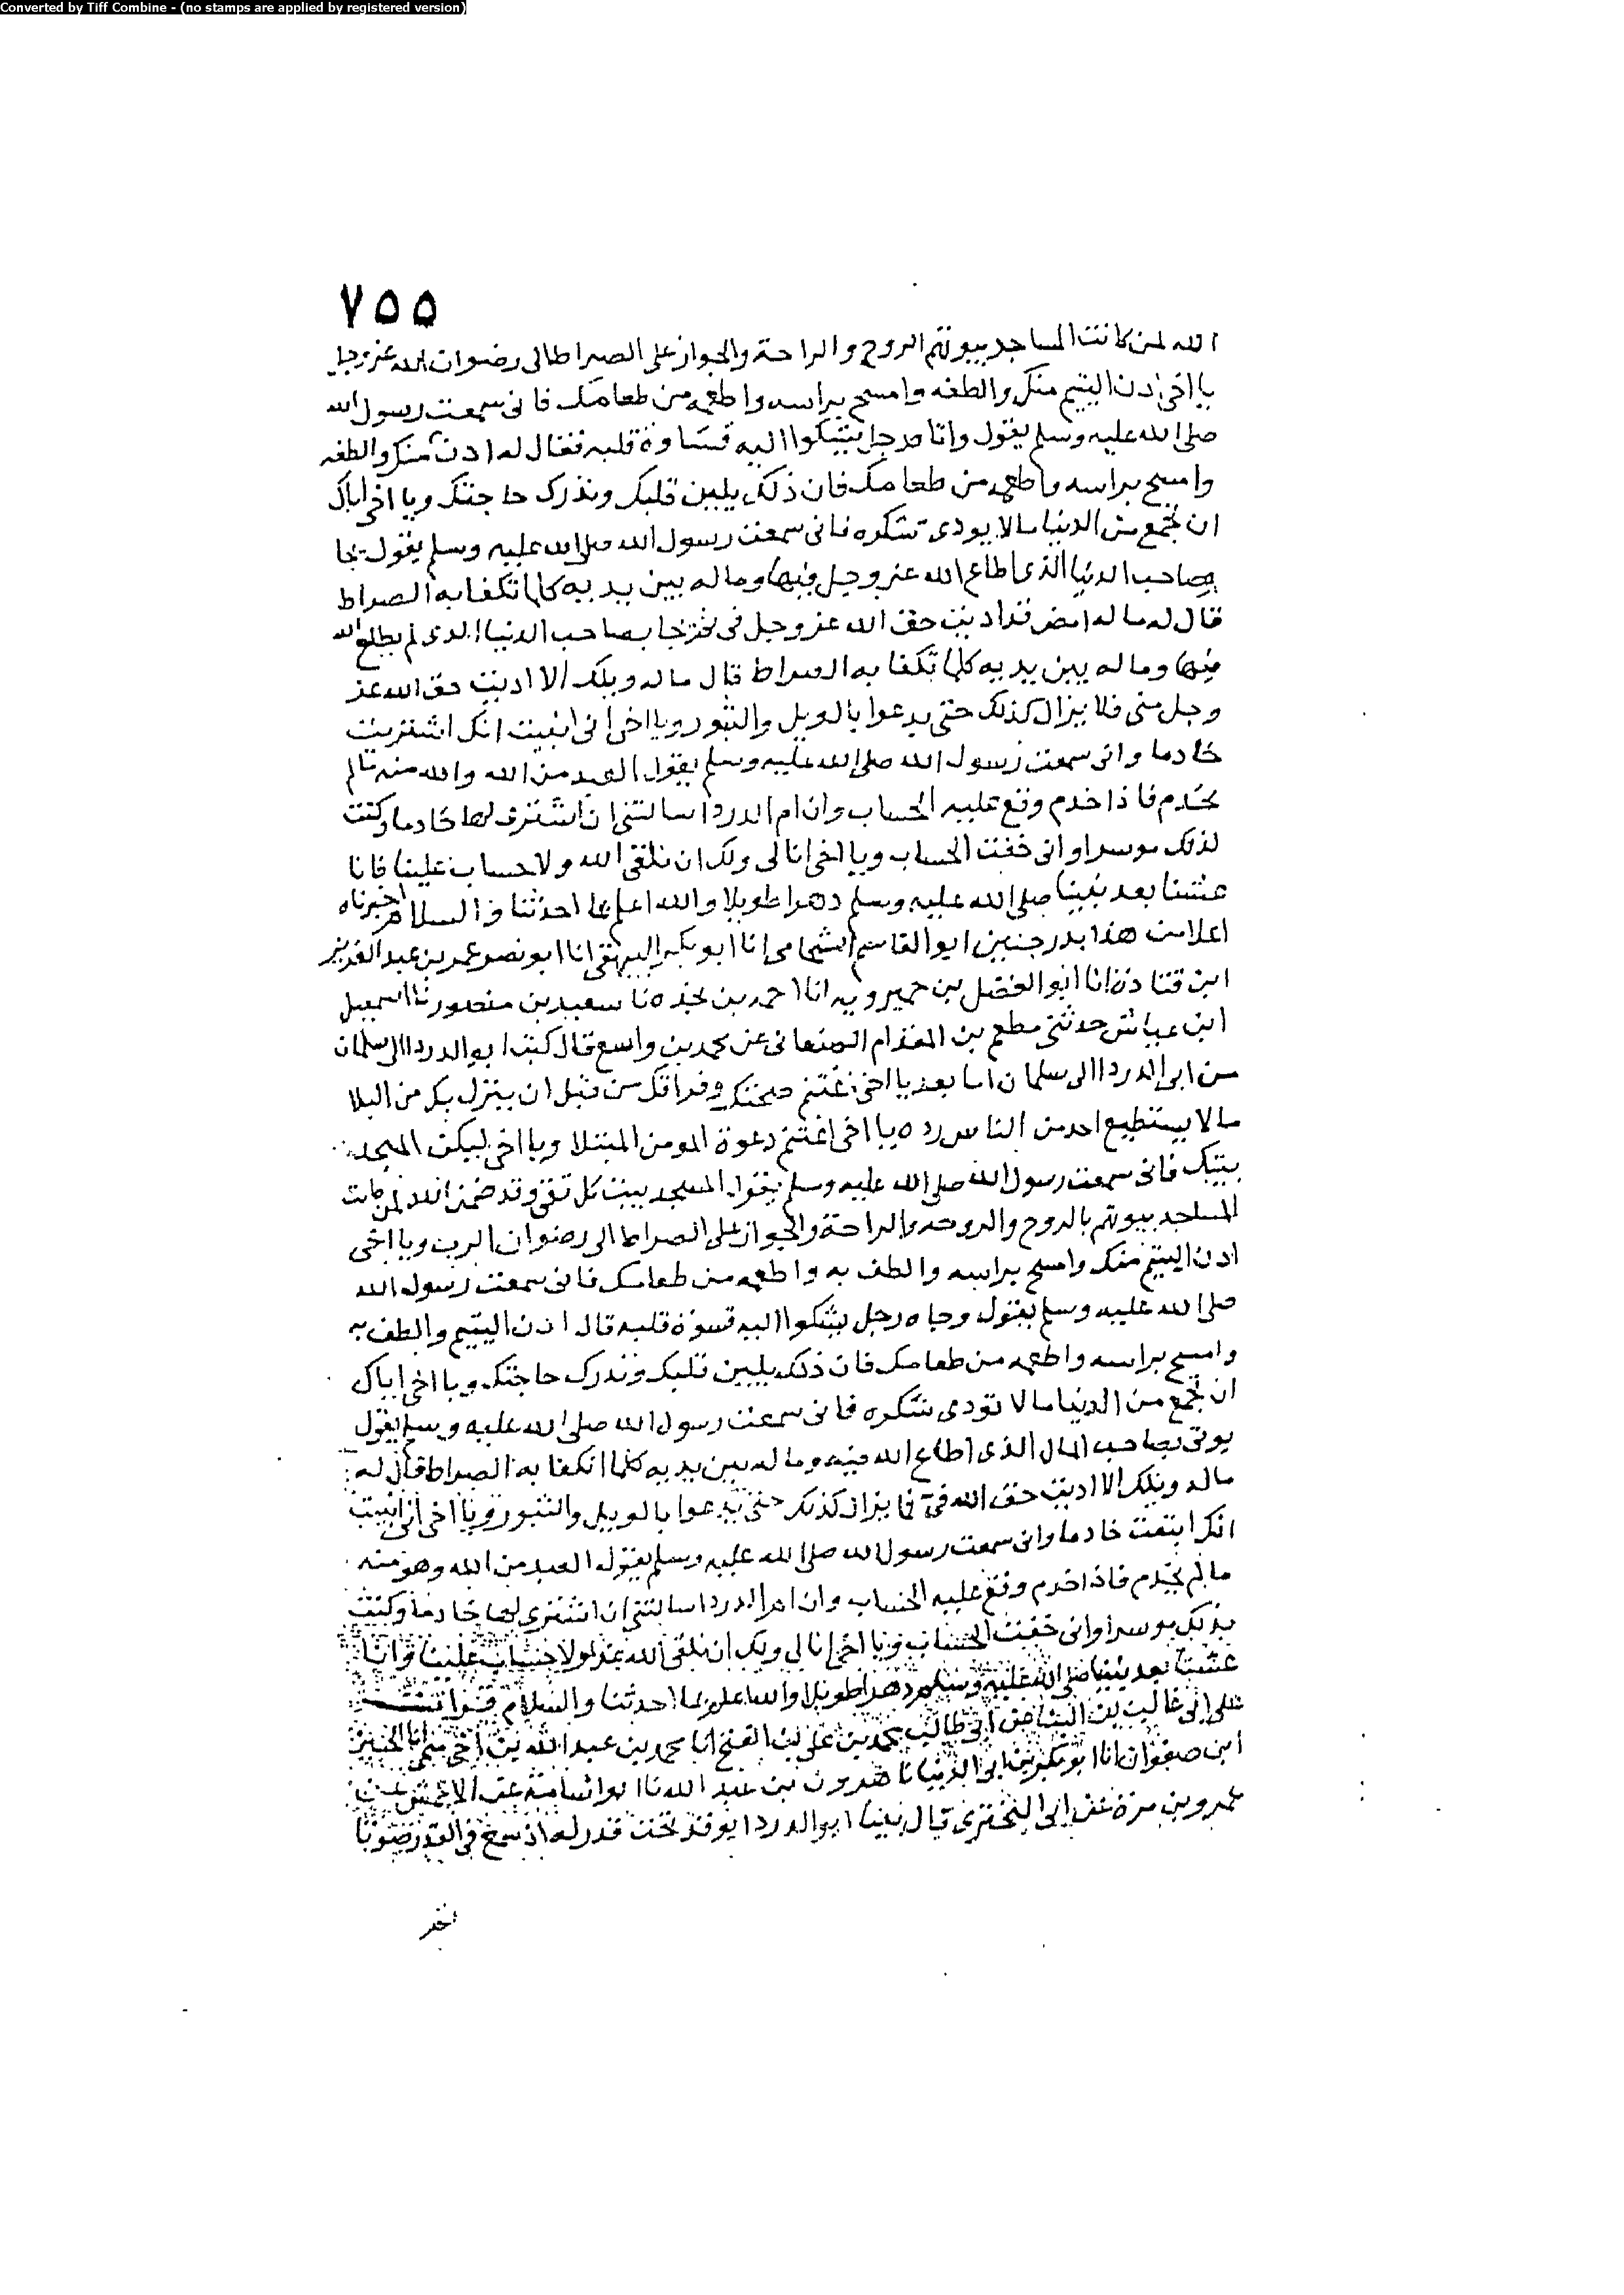 Converted by Tiff Combine - (no stamps are applied by registered version)
٧٥٥
الله لمن كانت المساجد بيوتهم الروح والراحة والجواز على الصراط الى رضوان الله عز وجل
يا اخي ادن اليتيم منك والطفه وامسح براسه واطعمه من طعامك فانى سمعت رسول الله
صلى الله عليه وسلم يقول واتاه رجل يشكوا اليه قساوة قلبه فقال له ادن منك والطفه
وامسح براسه واطعمه من طعامك فان ذلك يلين قلبك وتدرك حاجتك ويا اخى اياك
ان تجمع من الدنيا مالا يودى شكره فانى سمعت رسول الله صلى الله عليه وسلم يقول يجا
بصاحب الدنيا الذى اطاع الله عز وجل فيها وماله بين يديه كلما تكفا به الصراط
قال له ماله امض فقد اديت حق الله عز وجل فى ثم يجا بصاحب الدنيا الذى لم يطع الله
فيها وماله بين يديه كلما تكفا به الصراط قال ماله ويلك الا اديت حق الله عز
وجل منى فلا يزال كذلك حتى يدعوا بالويل والثبور ويا اخى انى انبيت انك اشتريت
خادما وانى سمعت رسول الله صلى الله عليه وسلم يقول العبد من الله والله منه مالم
يخدم فاذا خدم وقع عليه الحساب وان ام الدردا سالتنى ان اشترى لها خادما وكنت
لذلك موسرا وانى خفت الحساب ويا اخى انا لى ولك ان نلقى الله ولا حساب علينا فانا
عشنا بعد نبينا صلى الله عليه وسلم دهرا طويلا والله اعلم بما احدثنا والسلام اخبرناه
اعلا من هذا بدرجتين ابو القاسم الشحامى انا ابو بكر البيهقى انا ابو نصر عمر بن عبد العزيز
ابن قتادة انا ابو الفضل بن حميرويه انا احمد بن نجده نا سعيد بن منصور نا اسمعيل
ابن عياش حدثنى مطعم بن المقدام الصنعانى عن محمد بن واسع قال كتب ابو الدردا الى سلمان
من ابى الدردا الى سلمان اما بعد يا اخى اغتنم صحتك وفراغك من قبل ان ينزل بك من البلا
مالا يستطيع احد من الناس رده يا اخى اغتنم دعوة المومن المبتلا ويا اخى ليكن المسجد
بيتك فانى سمعت رسول الله صلى الله عليه وسلم يقول المسجد بيت كل تقى وقد ضمن الله لمن كانت
المساجد بيوتهم بالروح والروحه والراحة والجواز على الصراط الى رضوان الرب ويا اخى
ادن اليتيم منك وامسح براسه والطف به واطعمه من طعامك فانى سمعت رسول الله
صلى الله عليه وسلم يقول وجاه رجل يشكوا اليه قسوة قلبه قال ادن اليتيم والطف به
وامسح براسه واطعمه من طعامك فان ذلك يلين قلبك وتدرك حاجتك ويا اخى اياك
ان تجمع من الدنيا مالا تودى شكره فانى سمعت رسول الله صلى الله عليه وسلم يقول
يوتى بصاحب المال الذى اطاع الله فيه وماله بين يديه كلما انكفا به الصراط قال له
ماله ويلك الا اديت حق الله فى فما يزال كذلك حتى يدعوا بالويل والثبور ويا اخى انى انبيت
انك ابتعت خادما وانى سمعت رسول الله صلى الله عليه وسلم يقول العبد من الله وهو منه
ما لم يخدم فاذا خدم وقع عليه الحساب وان ام الدردا سالتنى ان اشترى لها خادما وكنت
بذلك موسرا وانى خفت الحساب ويا اخى انا لى ولك ان نلقى الله غدا ولا حساب علينا وانا
عشنا بعد نبينا صلى الله عليه وسلم دهرا طويلا والله اعلم بما احدثنا والسلام قرات
على ابى غالب بن البنا عن ابى طالب محمد بن على بن الفتح انا محمد بن عبد الله بن اخى ميمى انا الحسين
ابن صفوان انا ابو بكر بن ابى الدنيا نا هرون بن عبد الله نا ابو اسامة عن الاعمش عن
عمرو بن مرة عن ابى البخترى قال بينا ابو الدردا يوقد تحت قدر له اذ سمع فى القدر صوتا